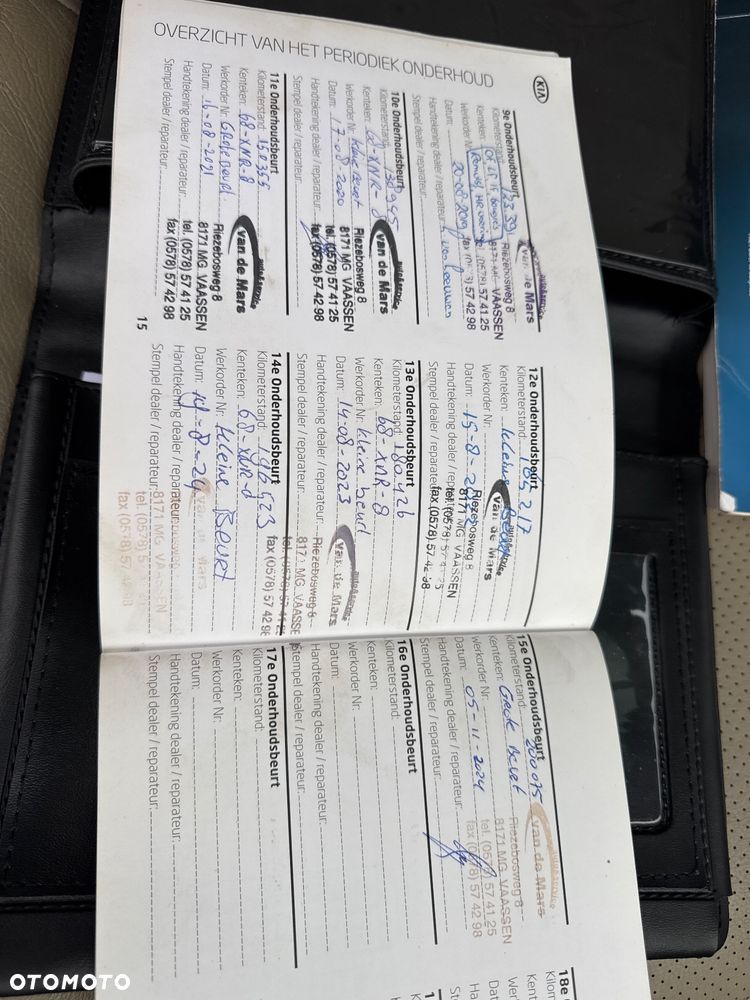 OVERZICHT VAN HET PERIODIEK ONDERHOUD
KIA
9e Onderhoudsbeurt
Kilometerstand:
Kenteken:
Werkorder Nr:
Datum: 20-08-2019
Handtekening dealer / reparateur:
Stempel dealer / reparateur:
van de Mars
Riezebosweg 8
8171 MG VAASSEN
(0578) 57 41 25
57 42 98
10e Onderhoudsbeurt
Kilometerstand:
Kenteken: 68-XNR-8
Werkorder Nr: Kleine Beurt
Datum: 17-08-2020
Handtekening dealer / reparateur:
Stempel dealer / reparateur:
auto&service
van de Mars
Riezebosweg 8
8171 MG VAASSEN
tel. (0578) 57 41 25
fax (0578) 57 42 98
11e Onderhoudsbeurt
Kilometerstand: 150355
Kenteken: 68-XNR-8
Werkorder Nr: Grote Beurt
Datum: 16-08-2021
Handtekening dealer / reparateur:
Stempel dealer / reparateur:
auto&service
van de Mars
Riezebosweg 8
8171 MG VAASSEN
tel. (0578) 57 41 25
fax (0578) 57 42 98
15
12e Onderhoudsbeurt
Kilometerstand:
Kenteken:
Werkorder Nr:
Datum: 15-8-
Handtekening dealer / reparateur:
Stempel dealer / reparateur:
auto&service
van de Mars
Riezebosweg 8
8171 MG VAASSEN
tel. (0578) 57
fax (0578) 57 42 98
13e Onderhoudsbeurt
Kilometerstand: 180426
Kenteken: 68-XNR-8
Werkorder Nr: kleine beurt
Datum: 14-08-2023
Handtekening dealer / reparateur:
Stempel dealer / reparateur:
auto&service
van de Mars
Riezebosweg 8
8171 MG VAASSE
tel. (0578) 57 41 25
fax (0578) 57 42 98
14e Onderhoudsbeurt
Kilometerstand: 196423
Kenteken: 68-XNR-8
Werkorder Nr: Kleine Beurt
Datum: 14-8-24
Handtekening dealer / reparateur:
Stempel dealer / reparateur:
van de Mars
8171 MG VAASSEN
tel. (0578) 5
fax (0578) 57 42 98
15e Onderhoudsbeurt
Kilometerstand: 200075
Kenteken: Grote Beurt
Werkorder Nr:
Datum: 05-11-2024
Handtekening dealer / reparateur:
Stempel dealer / reparateur:
auto&service
van de Mars
Riezebosweg 8
8171 MG VAASSEN
tel. (0578) 57 41 25
fax (0578) 57 42 98
16e Onderhoudsbeurt
Kilometerstand:
Kenteken:
Werkorder Nr:
Datum:
Handtekening dealer / reparateur:
Stempel dealer / reparateur:
17e Onderhoudsbeurt
Kilometerstand:
Kenteken:
Werkorder Nr:
Datum:
Handtekening dealer / reparateur:
Stempel dealer / reparateur:
18e
Kilom
Kent
Wer
Dat
Ha
St
OTOMOTO